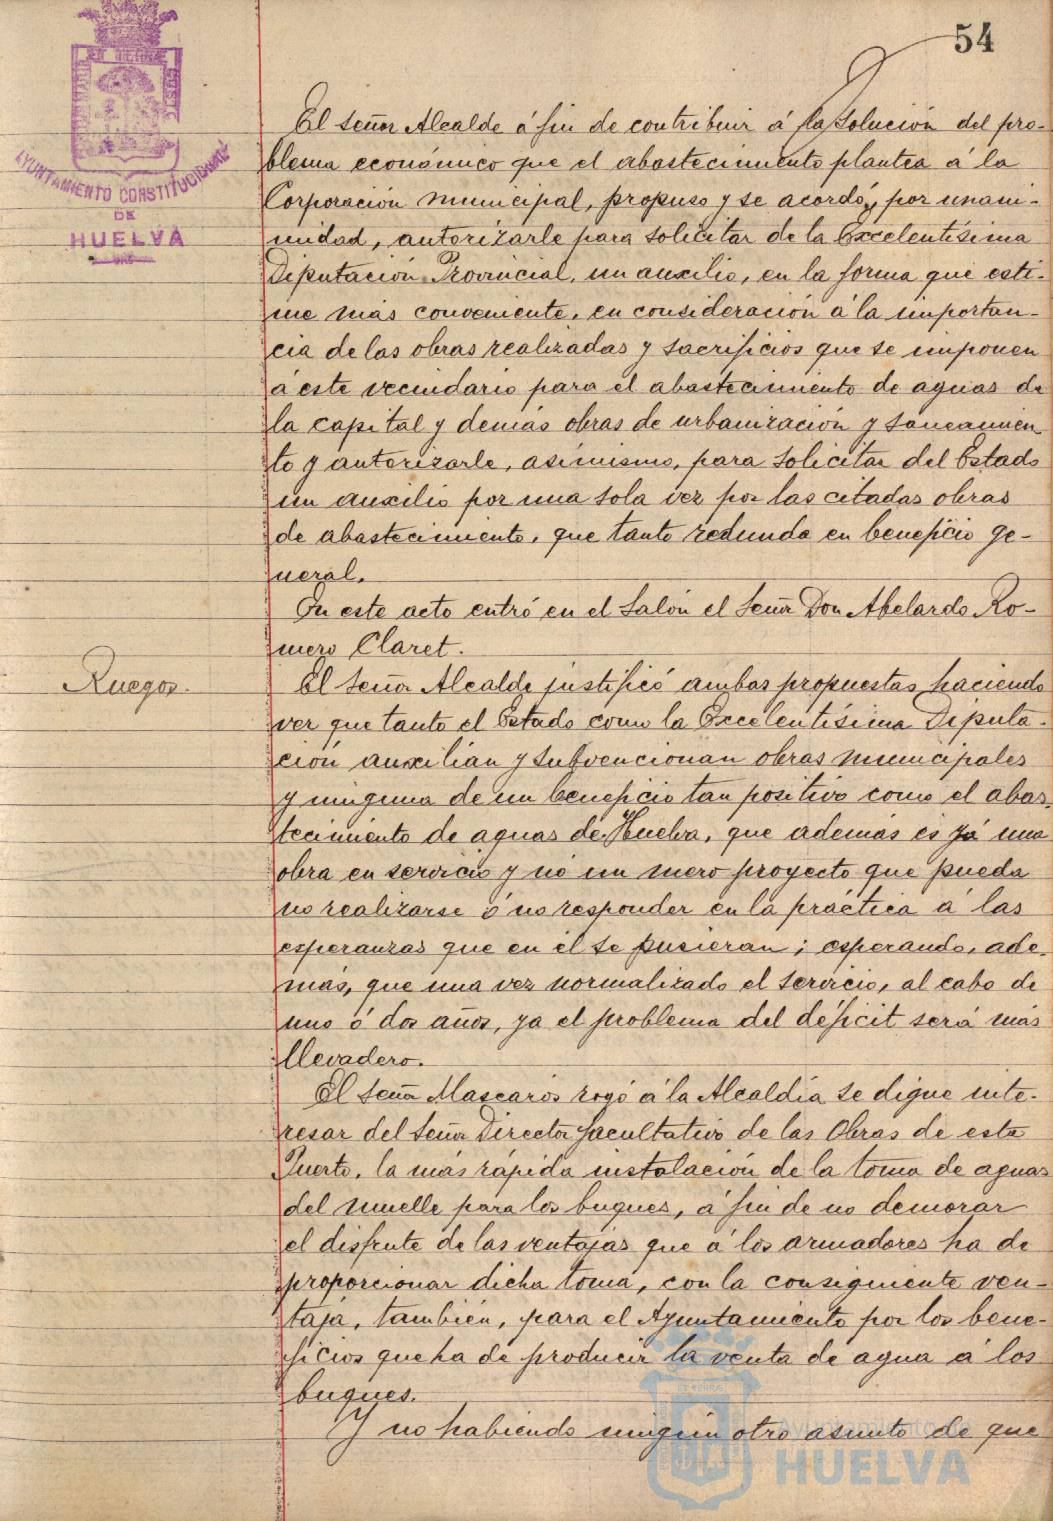 54
AYUNTAMIENTO CONSTITUCIONAL
DE
HUELVA
El señor Alcalde á fin de contribuir á la solución del pro-
blema económico que el abastecimiento plantea á la
Corporación municipal, propuso y se acordó, por unani-
midad, autorizarle para solicitar de la Excelentísima
Diputación Provincial, un auxilio, en la forma que esti-
me más conveniente, en consideración á la importan-
cia de las obras realizadas y sacrificios que se imponen
á este vecindario para el abastecimiento de aguas de
la capital y demás obras de urbanización y saneamien
to y autorizarle, asímismo, para solicitar del Estado
un auxilio por una sola vez por las citadas obras
de abastecimiento, que tanto redunda en beneficio ge-
neral.
En este acto entró en el Salón el Señor Don Abelardo Ro-
mero Claret.
Ruegos.
El Señor Alcalde justificó ambas propuestas haciendo
ver que tanto el Estado como la Excelentísima Diputa-
ción auxilian y subvencionan obras municipales
y ninguna de un beneficio tan positivo como el abas-
tecimiento de aguas de Huelva, que además es yá una
obra en servicio y nó un mero proyecto que pueda
no realizarse ó no responder en la práctica á las
esperanzas que en él se pusieran; esperando, ade-
más, que una vez normalizado el servicio, al cabo de
uno ó dos años, ya el problema del déficit será más
llevadero.
El Señor Mascarós rogó á la Alcaldía se digne inte-
resar del Señor Director facultativo de las Obras de este
Puerto, la más rápida instalación de la toma de aguas
del muelle para los buques, á fin de no demorar
el disfrute de las ventajas que á los armadores ha de
proporcionar dicha toma, con la consiguiente ven-
taja, también, para el Ayuntamiento por los bene-
ficios que ha de producir la venta de agua á los
buques.
Y no habiendo ningún otro asunto de que
Ayuntamiento de
HUELVA